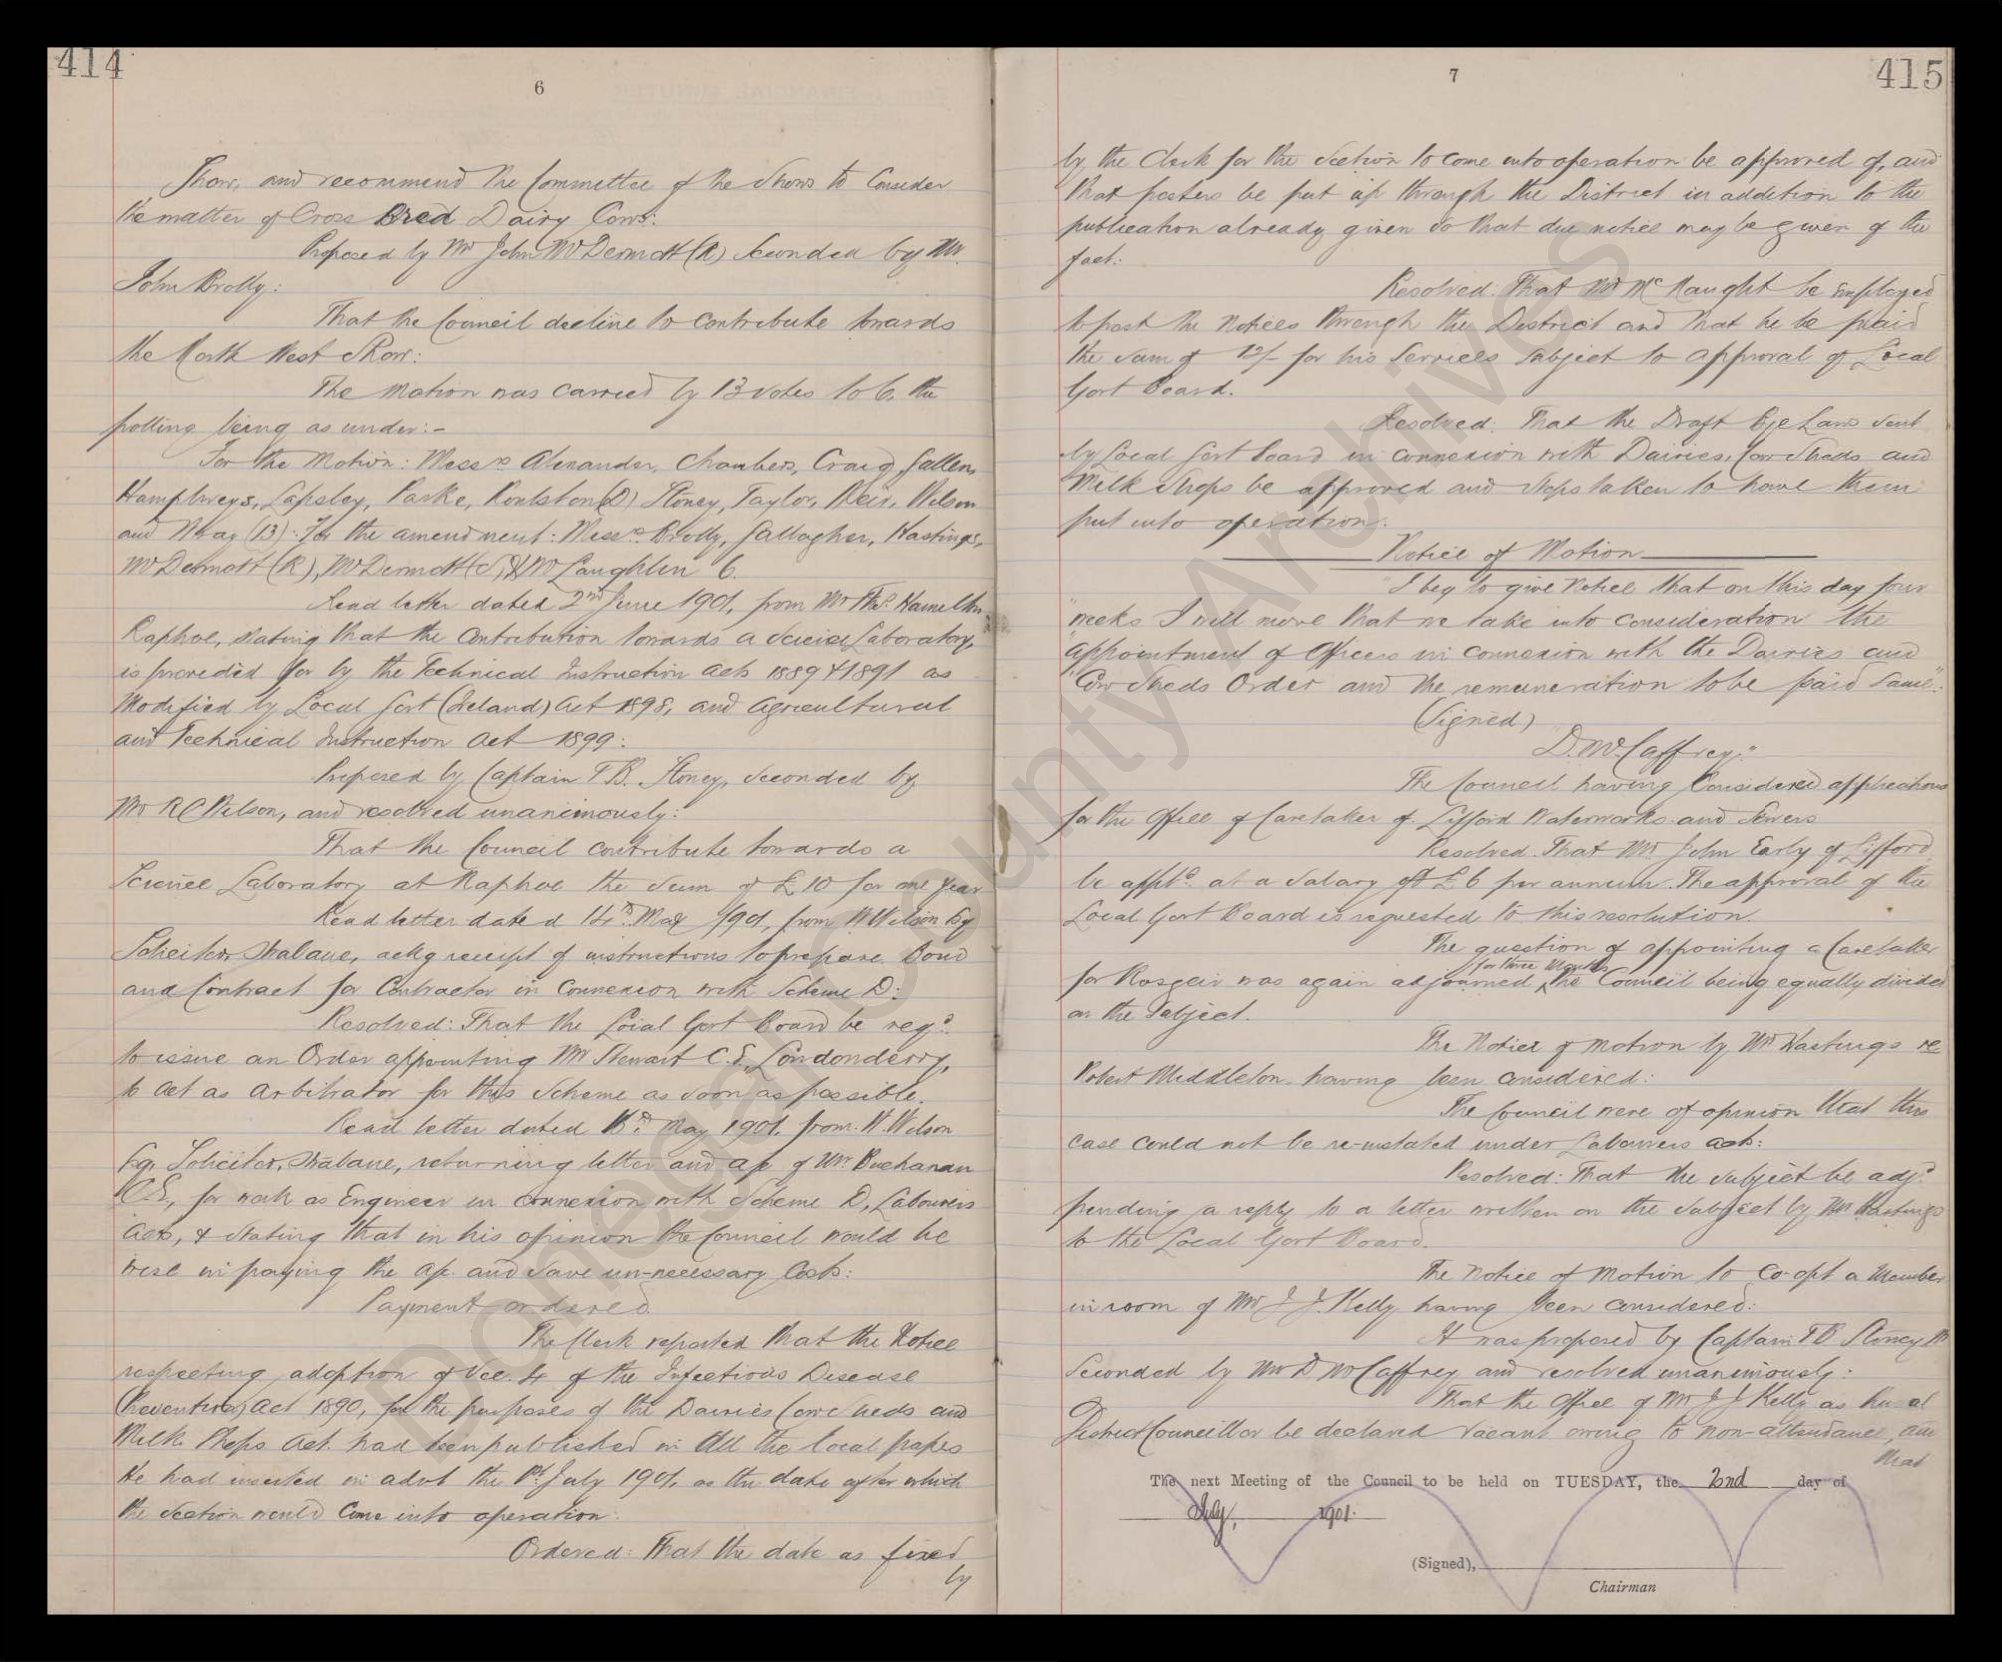 414
6
Show, and recommend the Committee of the Show to Consider
the matter of Cross Bred Dairy Cows:
Proposed by Mr John McDermott (R) Seconded by Mr
John Brolly:
That the Council decline to contribute towards
the North West Show:
The Motion was carried by 13 votes to 6, the
polling being as under:-
For the Motion: Messrs Alexander, Chambers, Craig, Gallen,
Humphreys, Lapsley, Parke, Roulston (D) Stoney, Taylor, Weir, Wilson
and Wray (13): For the amendment: Messrs. Brolly, Gallagher, Hastings,
McDermott (R), McDermott (S), & McLaughlin 6.
Read letter dated 2nd June 1901, from Mr Thos. Hamilton
Raphoe, stating that the Contribution towards a Science Laboratory,
is provided for by the Technical Instruction Acts 1889 & 1891 as
Modified by Local Govt (Ireland) Act 1898, and Agricultural
and Technical Instruction Act 1899:
Proposed by Captain T.B. Stoney, Seconded by
Mr R C Wilson, and resolved unanimously:
That the Council contribute towards a
Science Laboratory at Raphoe the Sum of £10 for one year
Read letter dated 14th May 1901, from W Wilson Esq
Solicitor Strabane, ackg receipt of instructions to prepare Bond
and Contract for Contractor in Connexion with Scheme D:
Resolved: That the Local Govt Board be reqd.
to issue an Order appointing Mr Stewart C.E, Londonderry,
to Act as Arbitrator for this Scheme as soon as possible.
Read letter dated May 1901, from W. Wilson
Esq. Solicitor, Strabane, returning letter and a/c of Mr. Buchanan
C.E, for work as Engineer in connexion with Scheme D, Labourers
Acts, & stating that in his opinion the Council would be
wise in paying the a/c and save un-necessary Costs:
Payment ordered
The Clerk reported that the Notice
respecting adoption of Sec. 4 of the Infectious Disease
(Prevention) Act 1890, for the purposes of the Dairies Cow Sheds and
Milk Shops Act had been published in all the local papers
He had inserted in advt the 1st July 1901, as the date after which
the Section would Come into operation:
Ordered: That the date as fixed
by
7
415
by the Clerk for the Section to come into operation be approved of, and
that posters be put up through the District in addition to the
publication already given so that due notice may be given of the
fact:
Resolved: That Mr McNaught be Employed
to post the Notices through the District and that he be paid
the Sum of 12/- for his Services Subject to approval of Local
Govt Board.
Resolved: That the Draft Bye Laws Sent
by Local Govt Board in connexion with Dairies, Cow Sheds and
Milk Shops be approved and Steps taken to have them
put into operation:
Notice of Motion
"I beg to give Notice that on this day four
"weeks I will move that we take into consideration the
"appointment of Officers in connexion with the Dairies and
"Cow Sheds Order and the remuneration to be paid Same":
(Signed)
"D. McCaffrey."
The Council having Considered applications
for the Office of Caretaker of Lifford Waterworks and Sewers
Resolved: That Mr. John Early of Lifford
be apptd. at a Salary of £6 per annum. The approval of the
Local Govt Board is requested to this resolution.
The question of appointing a Caretaker
for three Months
for Rosgeir was again adjourned, the Council being equally divided
on the Subject.
The Notice of Motion by Mr Hastings re
Robert Middleton having been considered:
The Council were of opinion that this
case could not be re-instated under Labourers Acts:
Resolved: That the Subject be adjd.
pending a reply to a letter written on the Subject by Mr Hastings
to the Local Govt Board.
The Notice of Motion to Co-opt a Member
in room of Mr J J. Kelly having been considered:
It was proposed by Captain T B Stoney
Seconded by Mr D McCaffrey and resolved unanimously:
That the Office of Mr J J Kelly as Rural
District Councillor be declared vacant owing to non-attendance, and
that
The next Meeting of the Council to be held on TUESDAY, the 2nd day of
July, 1901.
(Signed),
Chairman
Donegal County Archives